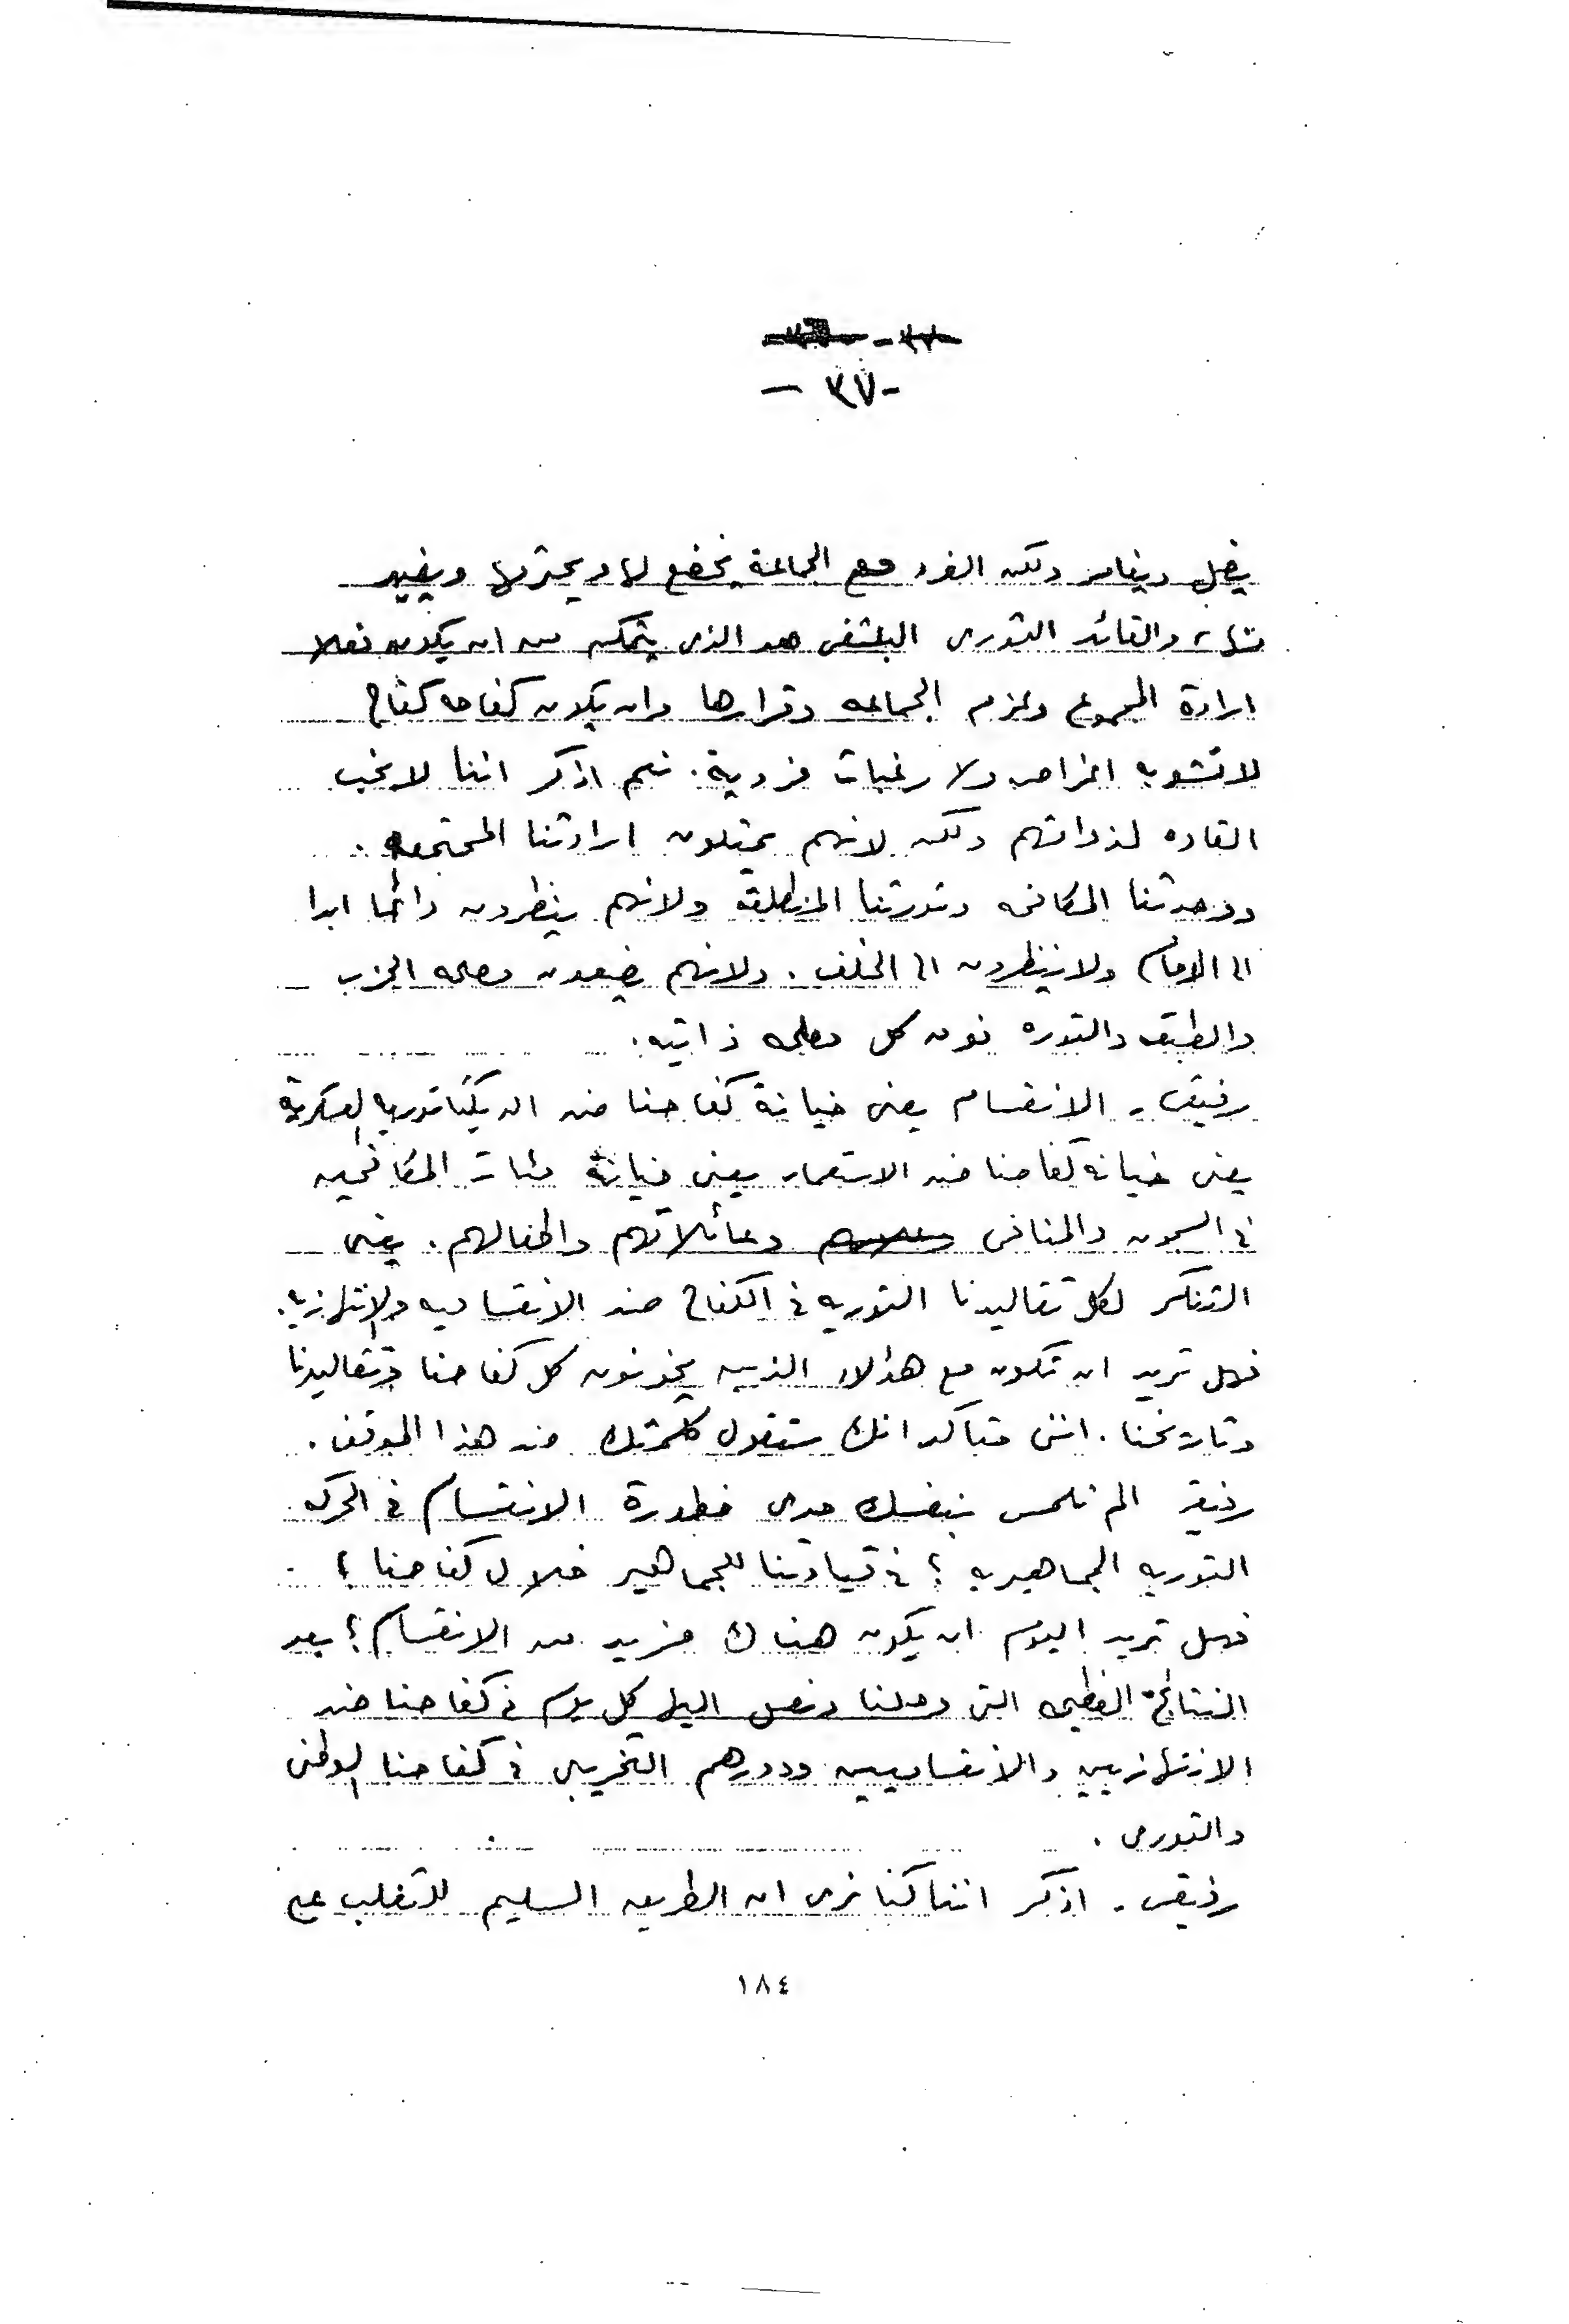 -٣٧-
يضل ويغامر ولكن الفرد مع الجماعة يخضع لها ويحترمها ويفيد
منها، والقائد الثورى البلشفى هو الذى يتمكن من ان يكون فعلا
ارادة المجموع وعزم الجماعه وقرارها وان يكون كفاحه كفاح
لاتشوبه اغراض ولا رغبات فردية. نعم اذكر اننا لا نحب
القاده لذواتهم ولكن لانهم يمثلون ارادتنا المجتمعه.
ووحدتنا المكافحه وثورتنا المنطلقة ولانهم ينظرون دائما ابدا
الى الامام ولا ينظرون الى الخلف. ولانهم يضعون مصلحه الحزب
والطبقه والثوره فوق كل مصلحه ذاتيه.
رفيقى. الانقسام يعنى خيانة كفاحنا ضد الديكتاتوريه العسكرية
يعنى خيانه كفاحنا ضد الاستعمار يعنى خيانة مئات المكافحين
فى السجون والمنافى وعائلاتهم واطفالهم. يعنى
التنكر لكل تقاليدنا الثوريه فى الكفاح ضد الانقساميه والانتهازيه.
فهل تريد ان تكون مع هؤلاء الذين يخونون كل كفاحنا وتقاليدنا
وتاريخنا. اننى متأكد انك ستقول كلمتك ضد هذا الموقف.
رفيقى الم تلمس بنفسك مدى خطورة الانقسام فى الحركه
الثوريه الجماهيريه ؟ فى قيادتنا للجماهير خلال كفاحنا ؟
فهل تريد اليوم ان يكون هناك مزيد من الانقسام ؟ بعد
النتائج العظيمه التى وصلنا ونصل اليها كل يوم فى كفاحنا ضد
الانتهازيين والانقساميين ودورهم التخريبى فى كفاحنا الوطنى
والثورى.
رفيقى. اذكر اننا كنا نرى ان الطريق السليم للتغلب على
١٨٤